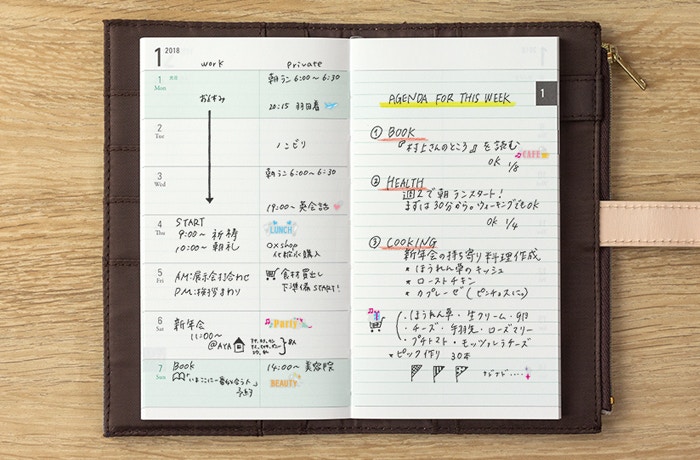 1 2018
work Private
1 Mon
おやすみ
朝ラン 6:00〜6:30
20:15 羽田着
2 Tue
ノンビリ
3 Wed
朝ラン 6:00〜6:30
19:00〜 英会話
4 Thu
START
9:00〜 祈祷
10:00〜 朝礼
LUNCH
○×shop
化粧水購入
5 Fri
AM:展示会打合わせ
PM:挨拶まわり
食材買出し
下準備START!
6 Sat
新年会
11:00〜
@AYA
8人
Party
7 Sun
Book
予約
14:00〜 美容院
BEAUTY
1
AGENDA FOR THIS WEEK
① BOOK
『村上さんのところ』を読む
OK 1/8
CAFE
② HEALTH
週2で朝ランスタート!
まずは30分から。ウォーキングでもOK
OK 1/4
③ COOKING
新年会の持ち寄り料理作成
* ほうれん草のキッシュ
* ローストチキン
* カプレーゼ(ピンチョスに)
・ほうれん草・生クリーム・卵
・チーズ・手羽先・ローズマリー
・プチトマト・モッツァレラチーズ
* ピック作り 30本